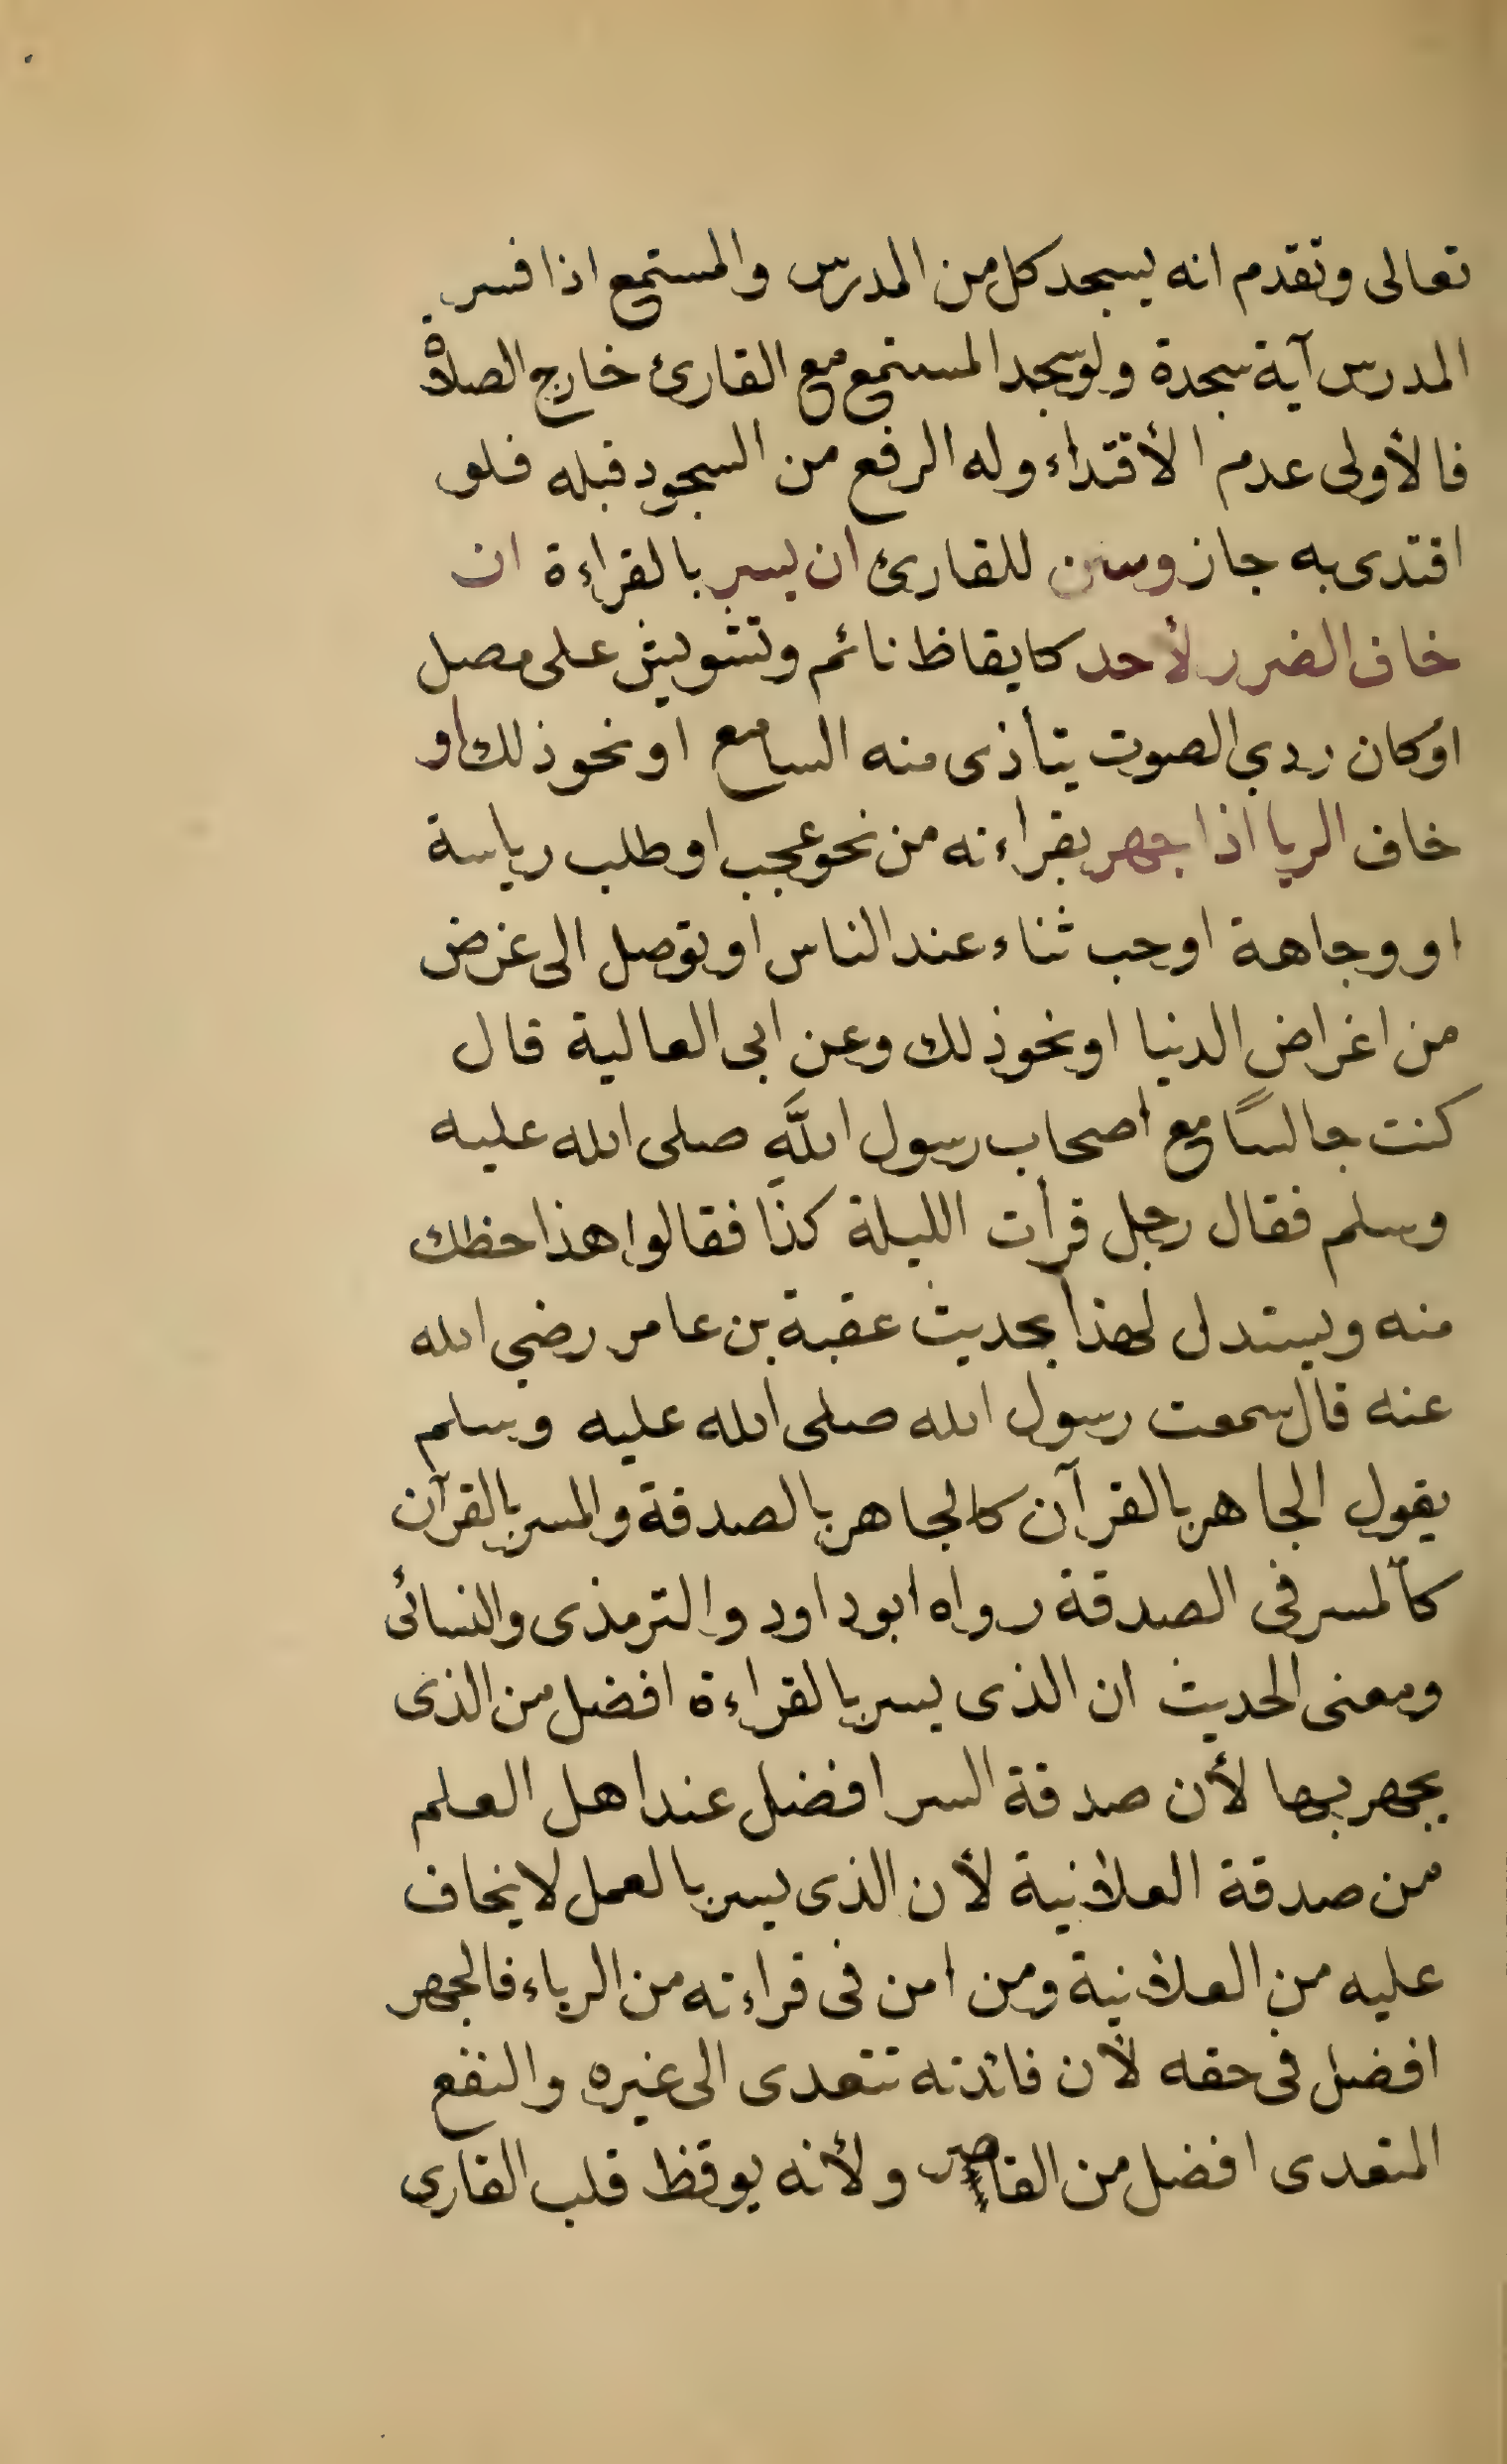 تعالى وتقدم انه يسجد كل من المدرس والمستمع اذا فسر
المدرس آية سجدة ولو سجد المستمع مع القارئ خارج الصلاة
فالأولى عدم الأقتداء وله الرفع من السجود قبله فلو
اقتدى به جاز وسن للقارئ ان يسر بالقراءة ان
خاف الضرر لأحد كايقاظ نائم وتشويش على مصل
او كان ردي الصوت يتأذى منه السامع او نحو ذلك او
خاف الريا اذا جهر بقراءته من نحو عجب او طلب رياسة
او وجاهة او حب ثناء عند الناس او توصل الى غرض
من اغراض الدنيا او نحو ذلك وعن ابى العالية قال
كنت جالسًا مع اصحاب رسول اللَّهِ صلى الله عليه
وسلم فقال رجل قرأت الليلة كذا فقالوا هذا حظك
منه ويستدل لهذا بحديث عقبة بن عامر رضي الله
عنه قال سمعت رسول الله صلى الله عليه وسلم
يقول الجاهر بالقرآن كالجاهر بالصدقة والمسر بالقرآن
كالمسر فى الصدقة رواه ابو داود والترمذى والنسائى
ومعنى الحديث ان الذى يسر بالقراءة افضل من الذى
يجهر بها لأن صدقة السر افضل عند اهل العلم
من صدقة العلانية لأن الذى يسر بالعمل لا يخاف
عليه من العلانية ومن امن فى قراءته من الرياء فالجهر
افضل فى حقه لأن فائدته تتعدى الى غيره والنفع
المتعدى افضل من القاصر ولأنه يوقظ قلب القارى